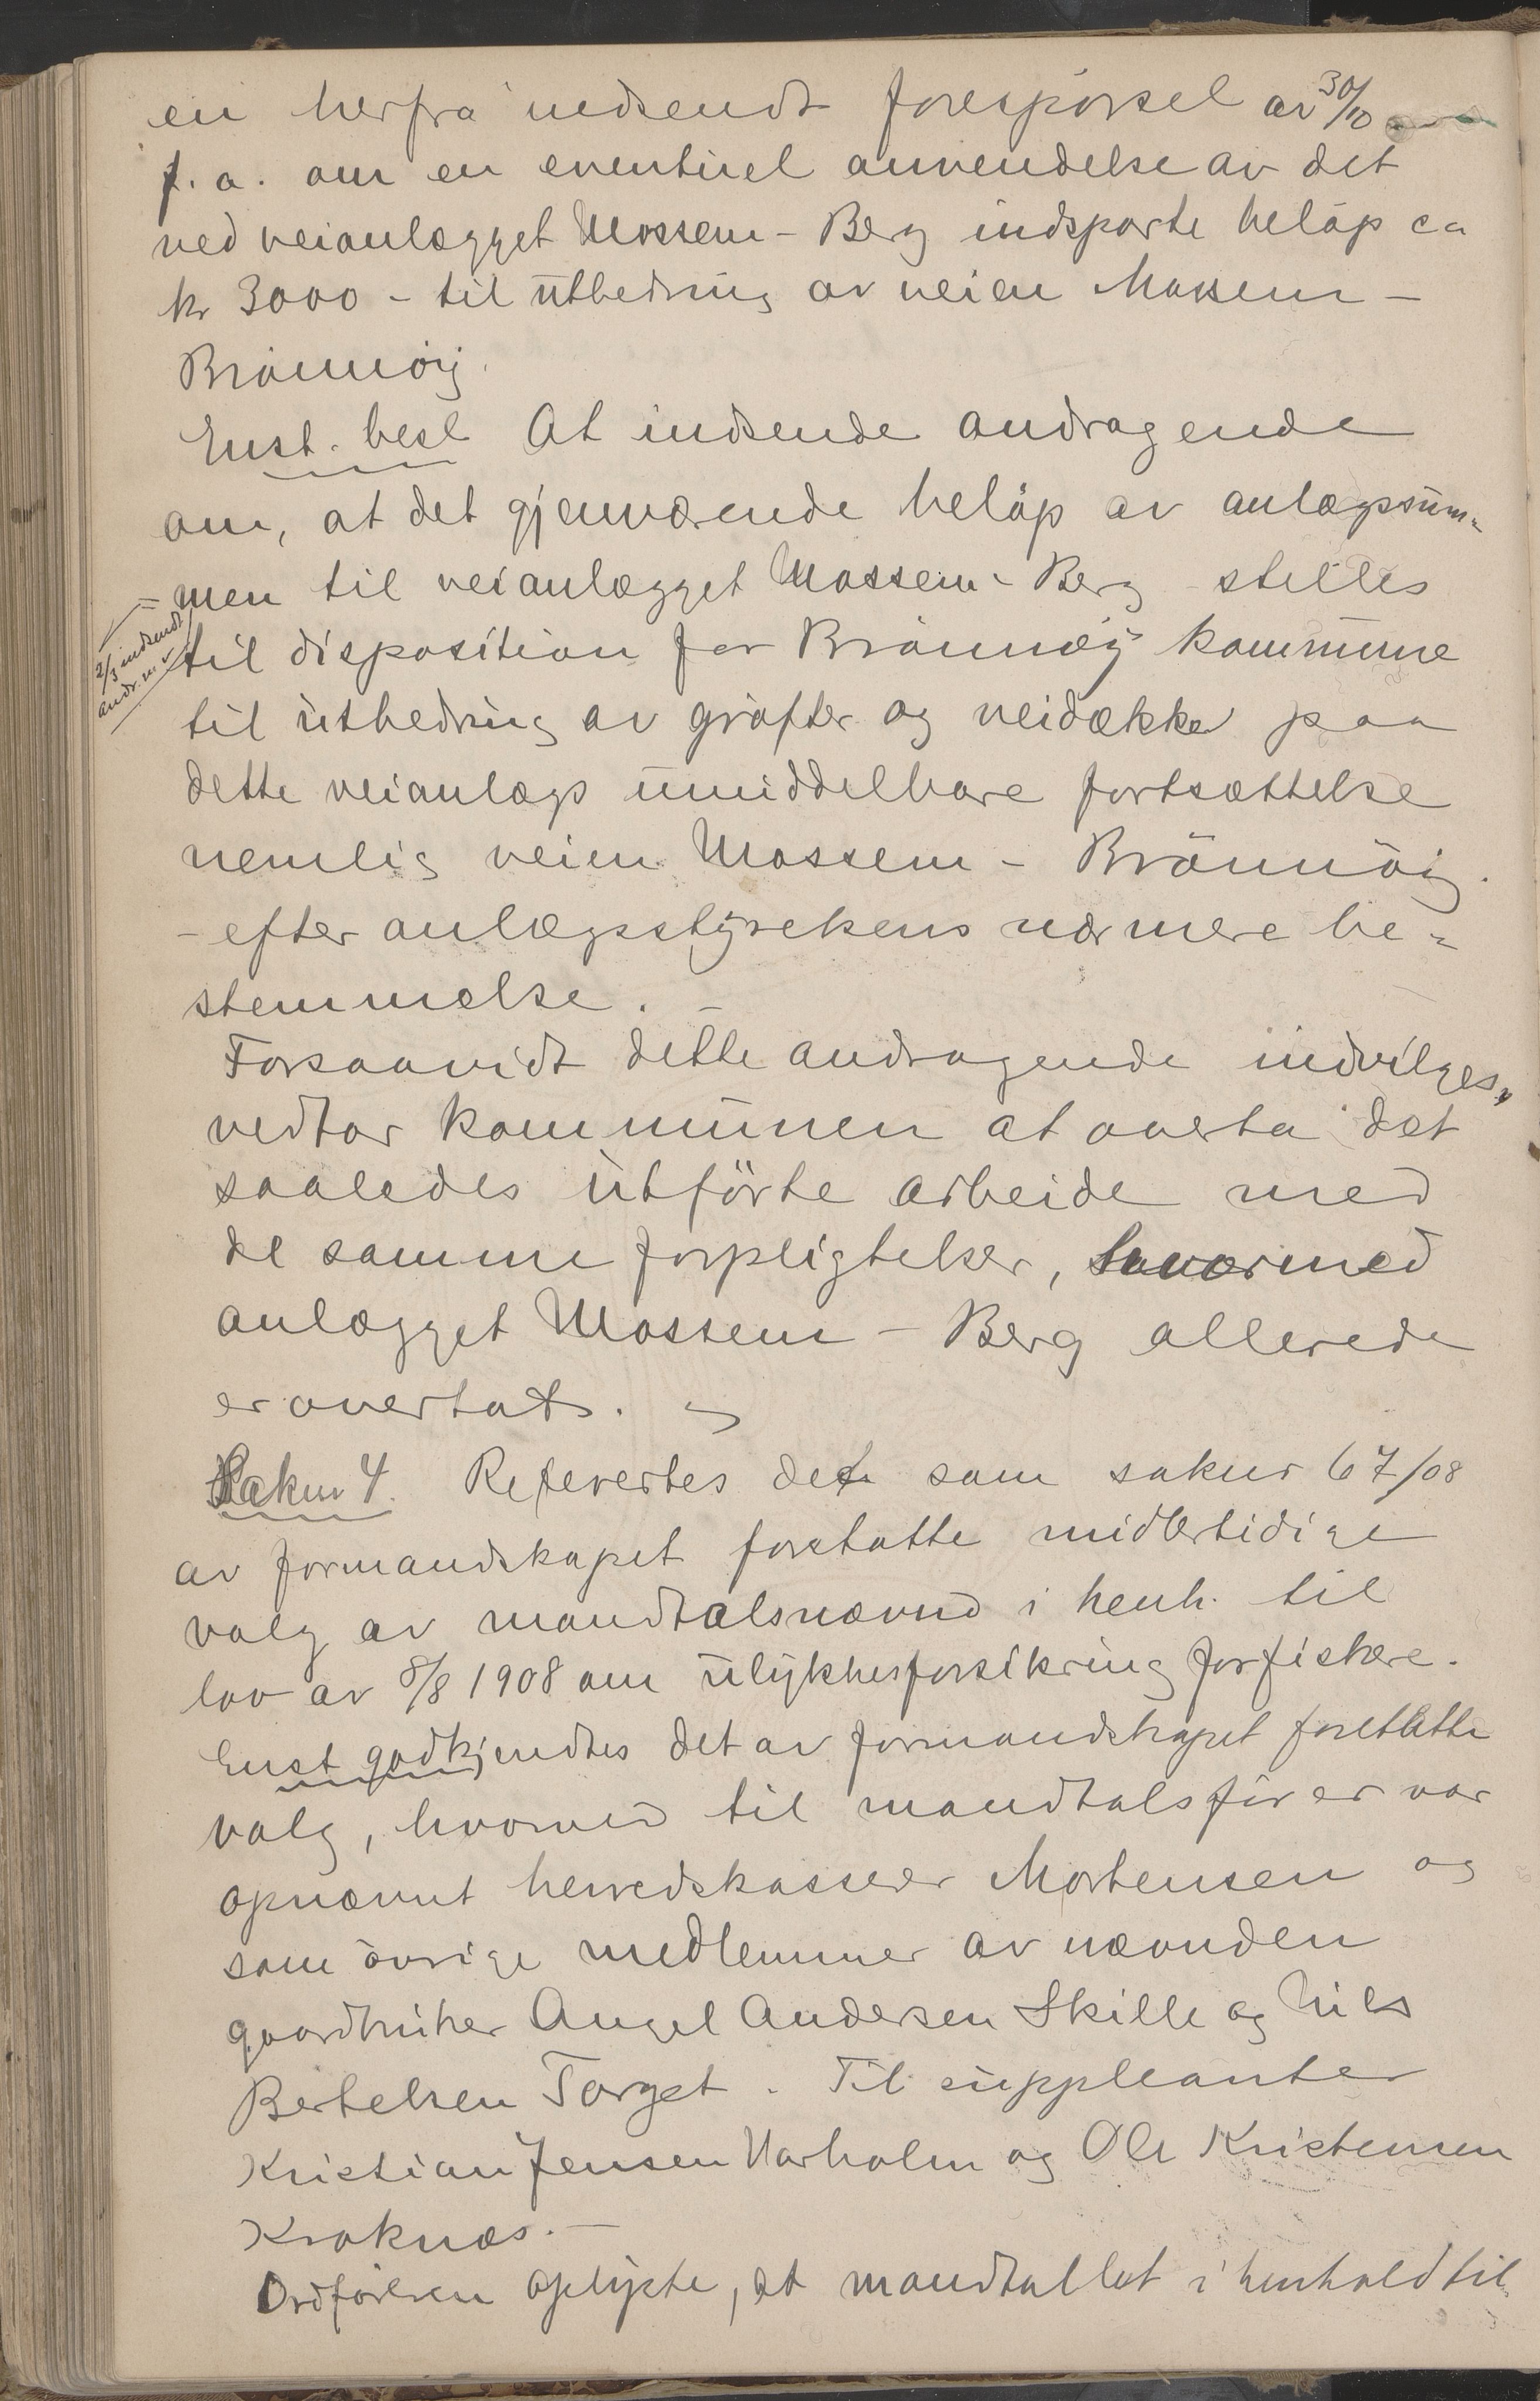 en herfra indsendt forespørsel av 30/10
f. a. om en eventuel anvendelse av det
ved veianlægget Mossem - Berg indsparte beløp ca
kr 3000 - til utbedring av veien Mossem -
Brönnöy.
Enst. besl At indsende andragende
om, at det gjenværende beløp av anlægssum-
- men til veianlægget Mossem - Berg stilles
2/3 indsendt
andr. m v
til disposition for Brönnöy kommune
til utbedring av grøfter og veidække paa
dette veianlægs umiddelbare fortsættelse
nemlig veien Mossem - Brönnöy.
- efter anlægsstyrelsens nærmere be-
stemmelse. -
Forsaavidt dette andragende indvilges,
vedtar kommunen at overta det
saaledes utförte arbeide med
de samme forpligtelser, hvormed
anlægget Mossem - Berg allerede
er overtat.
Saknr 4. Refertes det som saknr 67/08
av formandskapet foretatte midlertidige
valg av mandtalsnævnd i henh. til
lov av 8/8 1908 om ulykkesforsikring for fiskere.
Enst godkjendtes det av formandskapet foretatte
valg, hvorved til mandtalsfører var
opnævnt herredskasserer Mortensen og
som övrige medlemmer av nævnden
gaardbruker Angel Andersen Skille og Nils
Bertelsen Torget. Til suppleanter
Kristian Jensen Horholm og Ole Kristensen
Kroknæs. -
Ordføreren oplyste, at mandtallet i henhold til